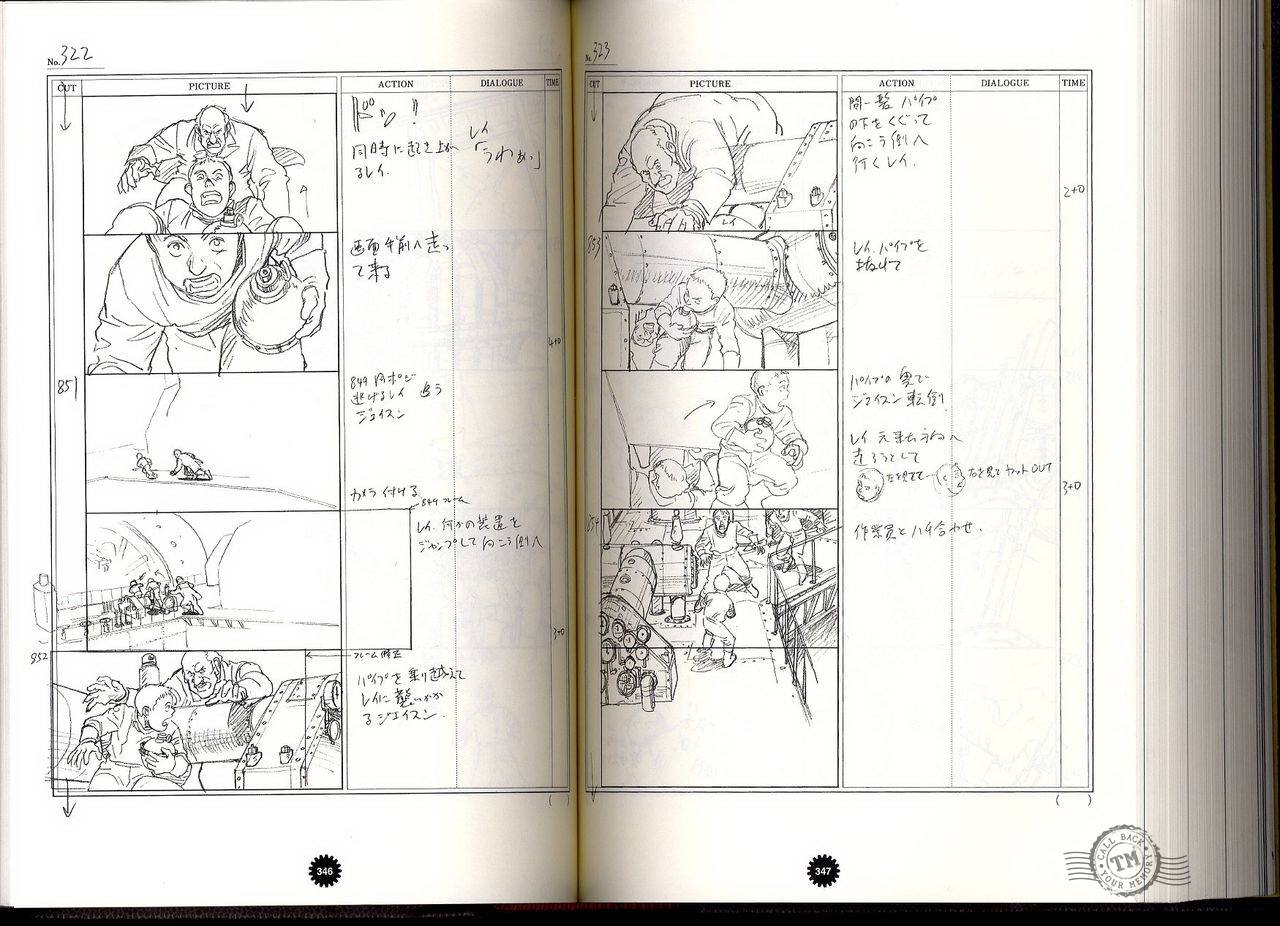 No. 322
CUT PICTURE ACTION DIALOGUE TIME
同時に起き上が
るレイ.
レイ
「うわぁっ」
画面手前へ走っ
て来る
4+0
851
849 同ポジ
逃げるレイ 追う
ジェイスン
カメラ付ける
849 フレーム
レイ, 何かの装置を
ジャンプして向こう側へ
3+0
852
フレーム修正
パイプを乗り越えて
レイに襲いかか
るジェイスン.
( )
346
No. 323
CUT PICTURE ACTION DIALOGUE TIME
間一髪 パイプ
の下をくぐって
向こう側へ
行くレイ.
2+0
853
レイ, パイプを
パイプの奥で
ジェイスン転倒.
レイ, 元来た方向へ
走ろうとして
左を見てて
右を見てカットOUT
3+0
854
作業員とハチ合わせ.
( )
347
CALL BACK
TM
YOUR MEMORY